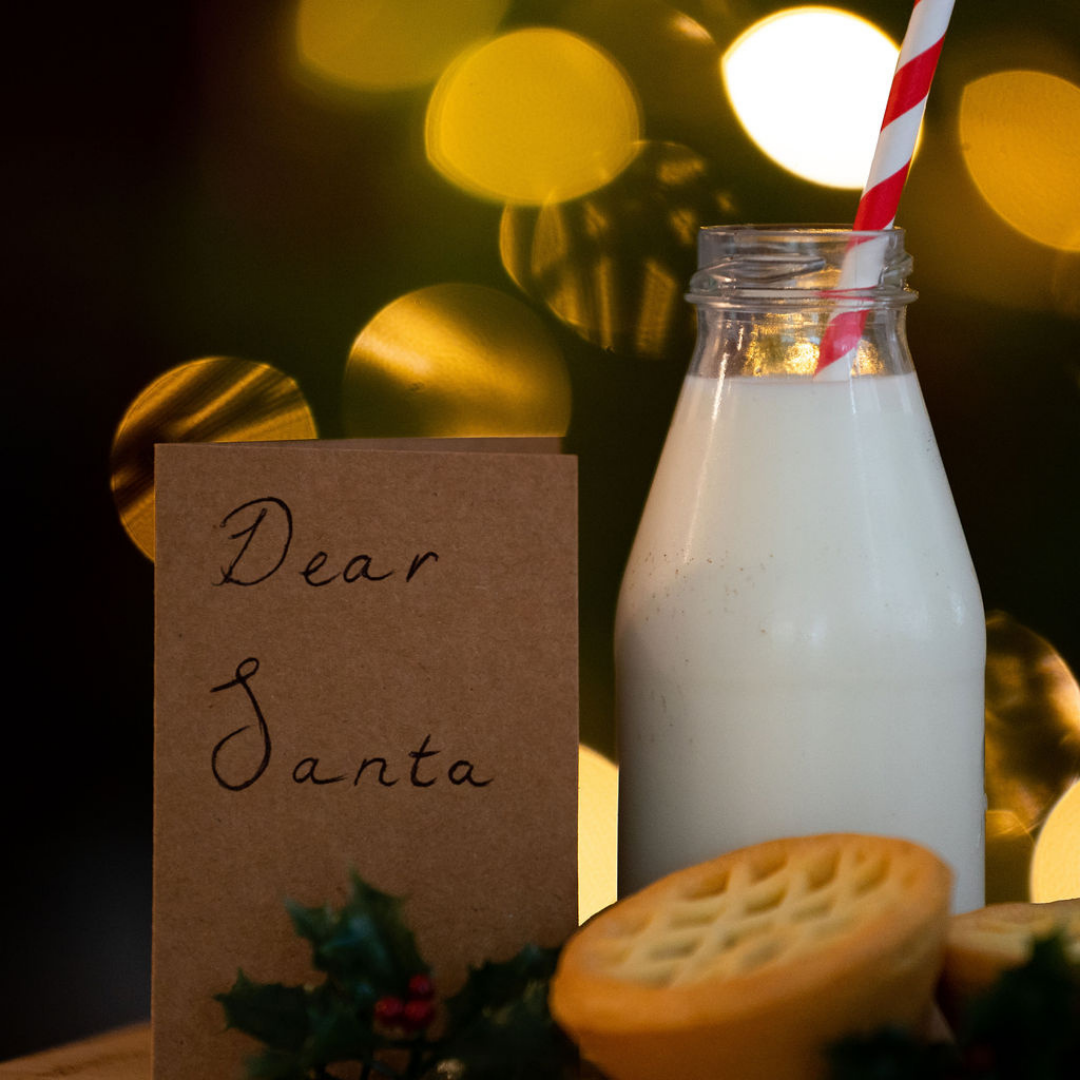 Dear
Santa